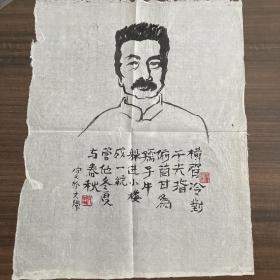 横眉冷對
千夫指
俯首甘為
孺子牛
躲進小楼
成一統
管他冬夏
与春秋